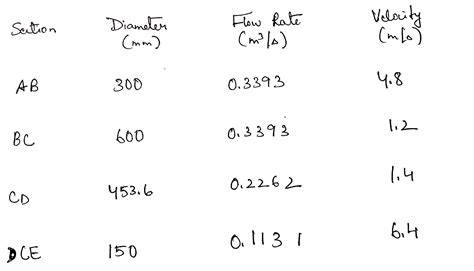 Section Diameter (mm) Flow Rate (m³/s) Velocity (m/s)
AB 300 0.3393 4.8
BC 600 0.3393 1.2
CD 453.6 0.2262 1.4
CE 150 0.1131 6.4